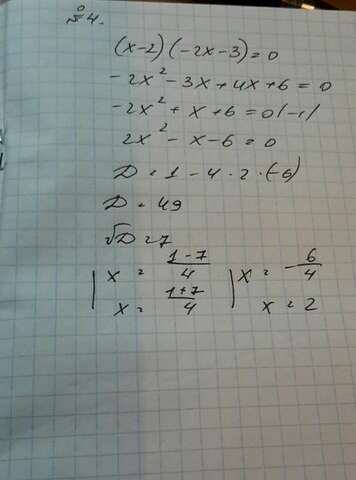 №4.
(x-2)(-2x-3)=0
-2x²-3x+4x+6=0
-2x²+x+6=0|-1|
2x²-x-6=0
D=1-4·2·(-6)
D=49
√D=7
x=(1-7)/4 x=-6/4
x=(1+7)/4 x=2